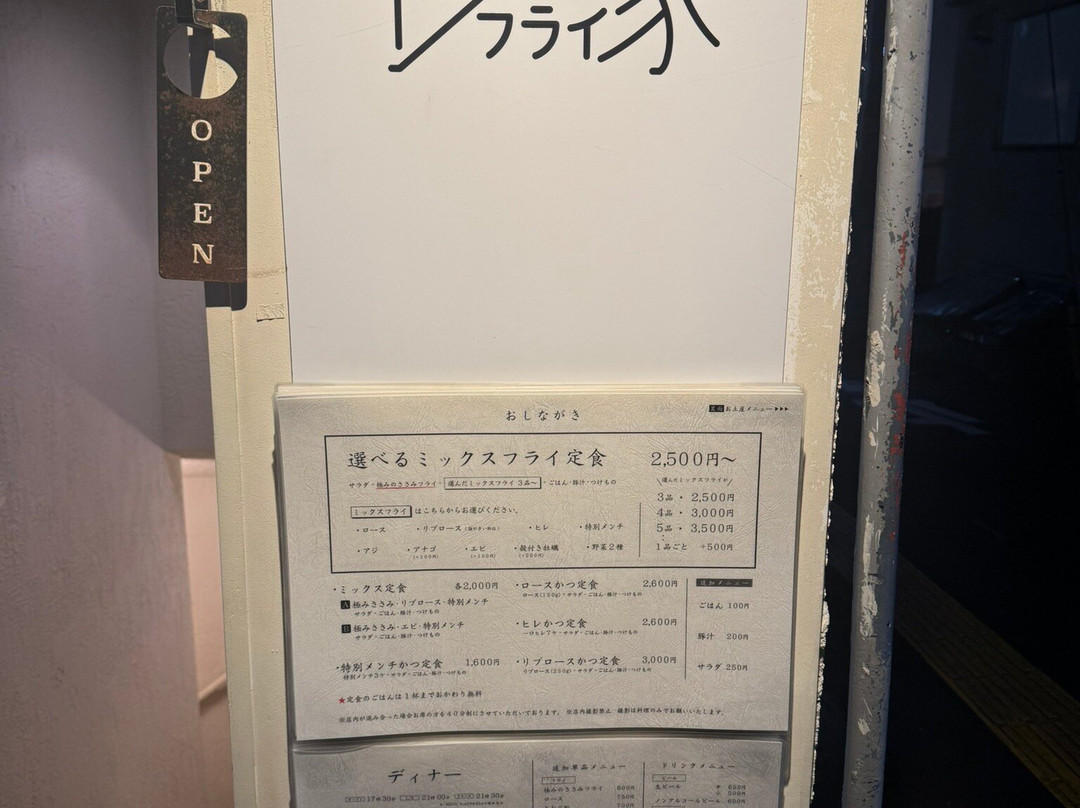 フライオ
OPEN
おしながき
お土産メニュー▶▶▶
選べるミックスフライ定食 2,500円～
サラダ・極みのささみフライ・選んだミックスフライ 3品～・ごはん・豚汁・つけもの
選んだミックスフライが
ミックスフライ はこちらからお選びください。
3品・2,500円
4品・3,000円
5品・3,500円
1品ごと +500円
・ロース ・リブロース ・ヒレ ・特別メンチ
・アジ ・アナゴ ・エビ ・殻付き牡蠣 ・野菜2種
・ミックス定食 各2,000円
A 極みささみ・リブロース・特別メンチ
サラダ・ごはん・豚汁・つけもの
B 極みささみ・エビ・特別メンチ
サラダ・ごはん・豚汁・つけもの
・特別メンチかつ定食 1,600円
特別メンチ3ケ・サラダ・ごはん・豚汁・つけもの
・ロースかつ定食 2,600円
ロース(150g)・サラダ・ごはん・豚汁・つけもの
・ヒレかつ定食 2,600円
一口ヒレ7ケ・サラダ・ごはん・豚汁・つけもの
・リブロースかつ定食 3,000円
リブロース(250g)・サラダ・ごはん・豚汁・つけもの
追加メニュー
ごはん 100円
豚汁 200円
サラダ 250円
★定食のごはんは1杯までおかわり無料
※店内が混み合った場合お席の方を40分制にさせていただいております。 ※店内撮影禁止 撮影は料理のみでお願いいたします。
ディナー
17時30分 21時00分 21時30分
追加単品メニュー
極みのささみフライ 600円
ロース 750円
700円
ドリンクメニュー
ビール
生ビール
ノンアルコールビール